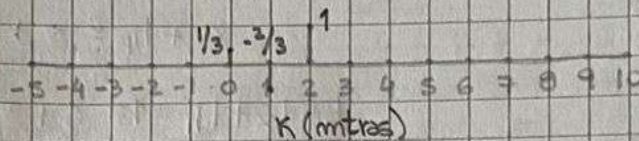 1/3 -2/3 1
-5 -4 -3 -2 -1 0 1 2 3 4 5 6 7 8 9 10
K (mtras)